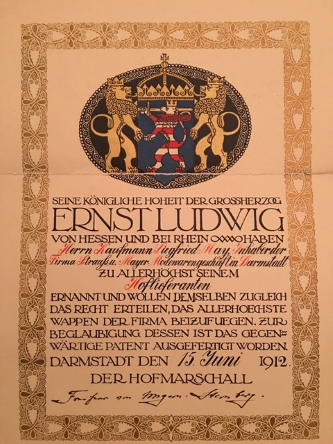 SEINE KÖNIGLICHE HOHEIT DER GROSSHERZOG
ERNST LUDWIG
VON HESSEN UND BEI RHEIN HABEN
Herrn Kaufmann Siegfried May, Inhaber der
Firma Strauß u. Mayer Modewarengeschäft in Darmstadt
ZU ALLERHÖCHST SEINEM
Hoflieferanten
ERNANNT UND WOLLEN DEMSELBEN ZUGLEICH
DAS RECHT ERTEILEN, DAS ALLERHOECHSTE
WAPPEN DER FIRMA BEIZUFUEGEN. ZUR
BEGLAUBIGUNG DESSEN IST DAS GEGEN-
WÄRTIGE PATENT AUSGEFERTIGT WORDEN.
DARMSTADT DEN 15. Juni 1912.
DER HOFMARSCHALL
von Ungern-Sternberg